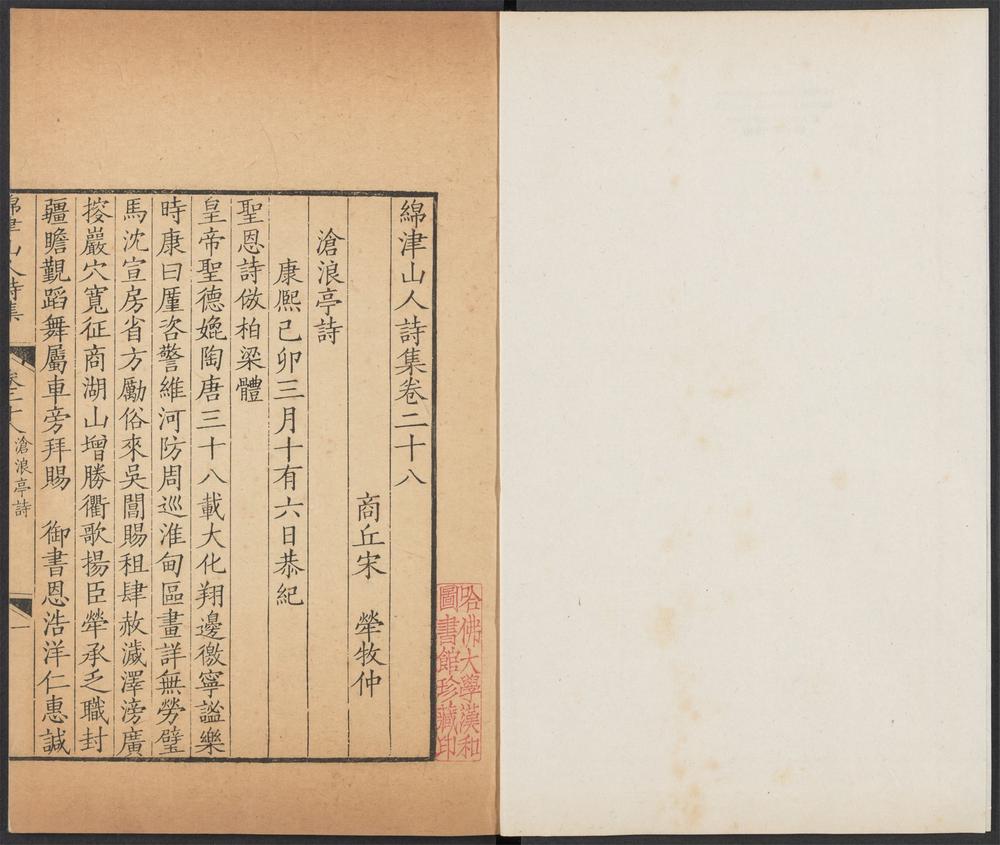 綿津山人詩集卷二十八
商丘宋 犖牧仲
滄浪亭詩
康熙己卯三月十有六日恭紀
聖恩詩倣柏梁體
皇帝聖德媲陶唐三十八載大化翔邊徼寧謐樂
時康日厪咨警維河防周巡淮甸區畫詳無勞璧
馬沈宣房省方勵俗來吳閶賜租肆赦濊澤滂廣
搜巖穴寬征商湖山增勝衢歌揚臣犖承乏職封
疆瞻覲蹈舞屬車旁拜賜 御書恩浩洋仁惠誠
綿津山人詩集 卷二十八 滄浪亭詩 一
哈佛大學漢和
圖書館珍藏印